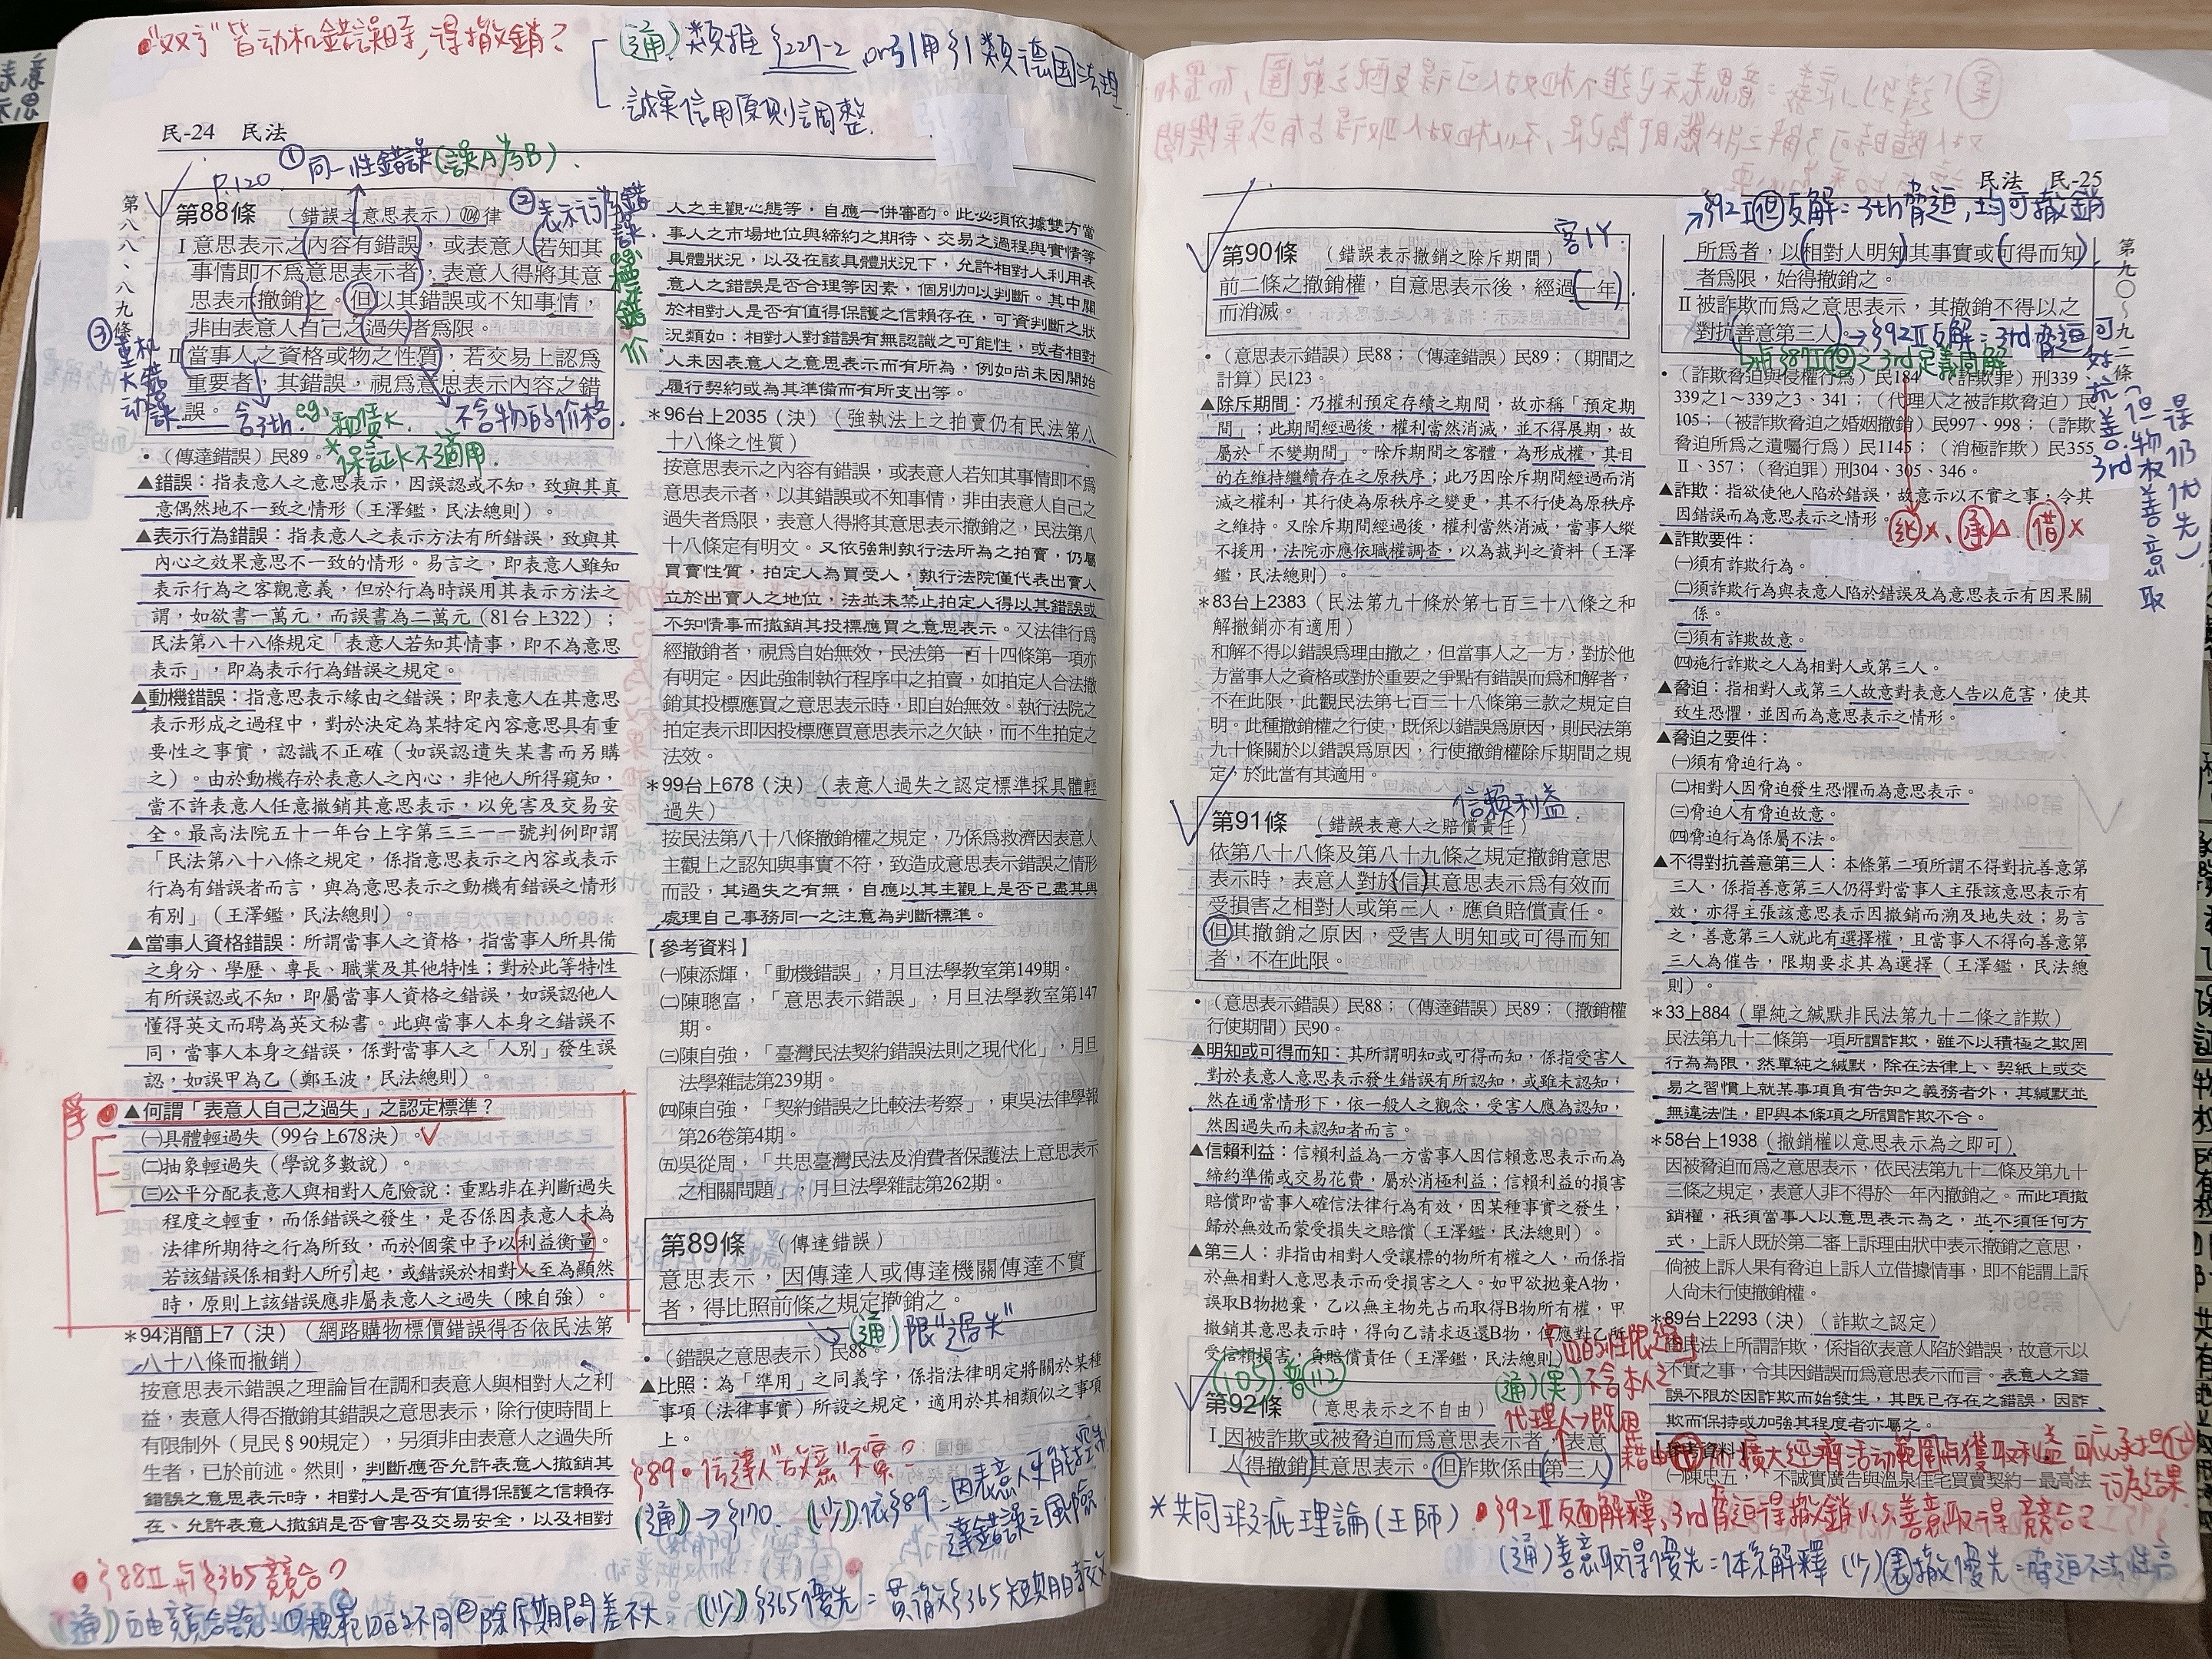 "双方"皆动机錯誤時，得撤銷？
(通)類推§227-2 or引用§1類德国法理
誠実信用原則調整.
民-24　民法
P.120
①同一性錯誤(誤A為B).
②表示行為錯誤
第八八、八九條
第88條　（錯誤之意思表示）104律
Ⅰ意思表示之內容有錯誤，或表意人若知其
事情即不爲意思表示者，表意人得將其意
思表示撤銷之。但以其錯誤或不知事情，
非由表意人自己之過失者爲限。
③重大动机錯誤
Ⅱ當事人之資格或物之性質，若交易上認爲
重要者，其錯誤，視爲意思表示內容之錯
誤。
含3th.
不含物的价格.
*保証K不適用.
•（傳達錯誤）民89。
▲錯誤：指表意人之意思表示，因誤認或不知，致與其真
意偶然地不一致之情形（王澤鑑，民法總則）。
▲表示行為錯誤：指表意人之表示方法有所錯誤，致與其
內心之效果意思不一致的情形。易言之，即表意人雖知
表示行為之客觀意義，但於行為時誤用其表示方法之
謂，如欲書一萬元，而誤書為二萬元（81台上322）；
民法第八十八條規定「表意人若知其情事，即不為意思
表示」，即為表示行為錯誤之規定。
▲動機錯誤：指意思表示緣由之錯誤；即表意人在其意思
表示形成之過程中，對於決定為某特定內容意思具有重
要性之事實，認識不正確（如誤認遺失某書而另購
之）。由於動機存於表意人之內心，非他人所得窺知，
當不許表意人任意撤銷其意思表示，以免害及交易安
全。最高法院五十一年台上字第三三一一號判例即謂
「民法第八十八條之規定，係指意思表示之內容或表示
行為有錯誤者而言，與為意思表示之動機有錯誤之情形
有別」（王澤鑑，民法總則）。
▲當事人資格錯誤：所謂當事人之資格，指當事人所具備
之身分、學歷、專長、職業及其他特性；對於此等特性
有所誤認或不知，即屬當事人資格之錯誤，如誤認他人
懂得英文而聘為英文秘書。此與當事人本身之錯誤不
同，當事人本身之錯誤，係對當事人之「人別」發生誤
認，如誤甲為乙（鄭玉波，民法總則）。
爭
▲何謂「表意人自己之過失」之認定標準？
㈠具體輕過失（99台上678決）。
㈡抽象輕過失（學說多數說）。
㈢公平分配表意人與相對人危險說：重點非在判斷過失
程度之輕重，而係錯誤之發生，是否係因表意人未為
法律所期待之行為所致，而於個案中予以利益衡量。
若該錯誤係相對人所引起，或錯誤於相對人至為顯然
時，原則上該錯誤應非屬表意人之過失（陳自強）。
*94消簡上7（決）（網路購物標價錯誤得否依民法第
八十八條而撤銷）
按意思表示錯誤之理論旨在調和表意人與相對人之利
益，表意人得否撤銷其錯誤之意思表示，除行使時間上
有限制外（見民§90規定），另須非由表意人之過失所
生者，已於前述。然則，判斷應否允許表意人撤銷其
錯誤之意思表示時，相對人是否有值得保護之信賴存
在、允許表意人撤銷是否會害及交易安全，以及相對
人之主觀心態等，自應一併審酌。此必須依據雙方當
事人之市場地位與締約之期待、交易之過程與實情等
具體狀況，以及在該具體狀況下，允許相對人利用表
意人之錯誤是否合理等因素，個別加以判斷。其中關
於相對人是否有值得保護之信賴存在，可資判斷之狀
況類如：相對人對錯誤有無認識之可能性，或者相對
人未因表意人之意思表示而有所為，例如尚未因開始
履行契約或為其準備而有所支出等。
*96台上2035（決）（強執法上之拍賣仍有民法第八
十八條之性質）
按意思表示之內容有錯誤，或表意人若知其事情即不爲
意思表示者，以其錯誤或不知事情，非由表意人自己之
過失者爲限，表意人得將其意思表示撤銷之，民法第八
十八條定有明文。又依強制執行法所為之拍賣，仍屬
買賣性質，拍定人為買受人，執行法院僅代表出賣人
立於出賣人之地位，法並未禁止拍定人得以其錯誤或
不知情事而撤銷其投標應買之意思表示。又法律行爲
經撤銷者，視爲自始無效，民法第一百十四條第一項亦
有明定。因此強制執行程序中之拍賣，如拍定人合法撤
銷其投標應買之意思表示時，即自始無效。執行法院之
拍定表示即因投標應買意思表示之欠缺，而不生拍定之
法效。
*99台上678（決）（表意人過失之認定標準採具體輕
過失）
按民法第八十八條撤銷權之規定，乃係爲救濟因表意人
主觀上之認知與事實不符，致造成意思表示錯誤之情形
而設，其過失之有無，自應以其主觀上是否已盡其與
處理自己事務同一之注意為判斷標準。
【參考資料】
㈠陳添輝，「動機錯誤」，月旦法學教室第149期。
㈡陳聰富，「意思表示錯誤」，月旦法學教室第147
期。
㈢陳自強，「臺灣民法契約錯誤法則之現代化」，月旦
法學雜誌第239期。
㈣陳自強，「契約錯誤之比較法考察」，東吳法律學報
第26卷第4期。
㈤吳從周，「共思臺灣民法及消費者保護法上意思表示
之相關問題」，月旦法學雜誌第262期。
第89條　（傳達錯誤）
意思表示，因傳達人或傳達機關傳達不實
者，得比照前條之規定撤銷之。
(通)限"過失"
•（錯誤之意思表示）民88
▲比照：為「準用」之同義字，係指法律明定將關於某種
事項（法律事實）所設之規定，適用於其相類似之事項
上。
§89。傳達人"故意"不实？
(通)→§170. (少)依§89=因表意人失能控制
達錯誤之風險
•§88Ⅱ與§365競合？
(通)自由競合說=①規範目的不同②除斥期間差不大 (少)§365優先=貫徹§365短期時效
民法　民-25
→§92Ⅱ但反解=3th脅迫，均可撤銷
客1Y.
第九〇～九二條
第90條　（錯誤表示撤銷之除斥期間）
前二條之撤銷權，自意思表示後，經過一年
而消滅。
•（意思表示錯誤）民88；（傳達錯誤）民89；（期間之
計算）民123。
▲除斥期間：乃權利預定存續之期間，故亦稱「預定期
間」；此期間經過後，權利當然消滅，並不得展期，故
屬於「不變期間」。除斥期間之客體，為形成權，其目
的在維持繼續存在之原秩序；此乃因除斥期間經過而消
滅之權利，其行使為原秩序之變更，其不行使為原秩序
之維持。又除斥期間經過後，權利當然消滅，當事人縱
不援用，法院亦應依職權調查，以為裁判之資料（王澤
鑑，民法總則）。
*83台上2383（民法第九十條於第七百三十八條之和
解撤銷亦有適用）
和解不得以錯誤爲理由撤之，但當事人之一方，對於他
方當事人之資格或對於重要之爭點有錯誤而爲和解者，
不在此限，此觀民法第七百三十八條第三款之規定自
明。此種撤銷權之行使，既係以錯誤爲原因，則民法第
九十條關於以錯誤爲原因，行使撤銷權除斥期間之規
定，於此當有其適用。
信賴利益
第91條　（錯誤表意人之賠償責任）
依第八十八條及第八十九條之規定撤銷意思
表示時，表意人對於信其意思表示爲有效而
受損害之相對人或第三人，應負賠償責任。
但其撤銷之原因，受害人明知或可得而知
者，不在此限。
•（意思表示錯誤）民88；（傳達錯誤）民89；（撤銷權
行使期間）民90。
▲明知或可得而知：其所謂明知或可得而知，係指受害人
對於表意人意思表示發生錯誤有所認知，或雖未認知，
然在通常情形下，依一般人之觀念，受害人應為認知，
然因過失而未認知者而言。
▲信賴利益：信賴利益為一方當事人因信賴意思表示而為
締約準備或交易花費，屬於消極利益；信賴利益的損害
賠償即當事人確信法律行為有效，因某種事實之發生，
歸於無效而蒙受損失之賠償（王澤鑑，民法總則）。
▲第三人：非指由相對人受讓標的物所有權之人，而係指
於無相對人意思表示而受損害之人。如甲欲拋棄A物，
誤取B物拋棄，乙以無主物先占而取得B物所有權，甲
撤銷其意思表示時，得向乙請求返還B物，但應對乙所
受信賴損害，負賠償責任（王澤鑑，民法總則）
「目的性限縮」
(通)(実)不含本人之
代理人
第92條　（意思表示之不自由）
Ⅰ因被詐欺或被脅迫而爲意思表示者，表意
人得撤銷其意思表示。但詐欺係由第三人
所爲者，以相對人明知其事實或可得而知
者爲限，始得撤銷之。
Ⅱ被詐欺而爲之意思表示，其撤銷不得以之
對抗善意第三人。
→§92Ⅱ反解=3rd脅迫可對抗善意3rd（但物权善意取得仍优先）
與§87Ⅰ但之3rd定義同解
•（詐欺脅迫與侵權行爲）民184；（詐欺罪）刑339、
339之1～339之3、341；（代理人之被詐欺脅迫）民
105；（被詐欺脅迫之婚姻撤銷）民997、998；（詐欺
脅迫所爲之遺囑行爲）民1145；（消極詐欺）民355
Ⅱ、357；（脅迫罪）刑304、305、346。
▲詐欺：指欲使他人陷於錯誤，故意示以不實之事，令其
因錯誤而為意思表示之情形。
▲詐欺要件：
㈠須有詐欺行為。
㈡須詐欺行為與表意人陷於錯誤及為意思表示有因果關
係。
㈢須有詐欺故意。
㈣施行詐欺之人為相對人或第三人。
▲脅迫：指相對人或第三人故意對表意人告以危害，使其
致生恐懼，並因而為意思表示之情形。
▲脅迫之要件：
㈠須有脅迫行為。
㈡相對人因脅迫發生恐懼而為意思表示。
㈢脅迫人有脅迫故意。
㈣脅迫行為係屬不法。
▲不得對抗善意第三人：本條第二項所謂不得對抗善意第
三人，係指善意第三人仍得對當事人主張該意思表示有
效，亦得主張該意思表示因撤銷而溯及地失效；易言
之，善意第三人就此有選擇權，且當事人不得向善意第
三人為催告，限期要求其為選擇（王澤鑑，民法總
則）。
*33上884（單純之緘默非民法第九十二條之詐欺）
民法第九十二條第一項所謂詐欺，雖不以積極之欺罔
行為為限，然單純之緘默，除在法律上、契約上或交
易之習慣上就某事項負有告知之義務者外，其緘默並
無違法性，即與本條項之所謂詐欺不合。
*58台上1938（撤銷權以意思表示為之即可）
因被脅迫而爲之意思表示，依民法第九十二條及第九十
三條之規定，表意人非不得於一年內撤銷之。而此項撤
銷權，祇須當事人以意思表示為之，並不須任何方
式，上訴人既於第二審上訴理由狀中表示撤銷之意思，
倘被上訴人果有脅迫上訴人立借據情事，即不能謂上訴
人尚未行使撤銷權。
*89台上2293（決）（詐欺之認定）
民法上所謂詐欺，係指欲表意人陷於錯誤，故意示以
不實之事，令其因錯誤而爲意思表示而言。表意人之錯
誤不限於因詐欺而始發生，其既已存在之錯誤，因詐
欺而保持或加強其程度者亦屬之。
擴大經濟活動範圍與獲取利益
㈠陳忠五，「不誠實廣告與溫泉住宅買賣契約－最高法
*共同瑕疵理論(王師)
•§92Ⅱ反面解釋，3rd脅迫得撤銷 v.s善意取得 競合？
(通)善意取得優先=体系解釋 (少)表撤優先=脅迫不法性高